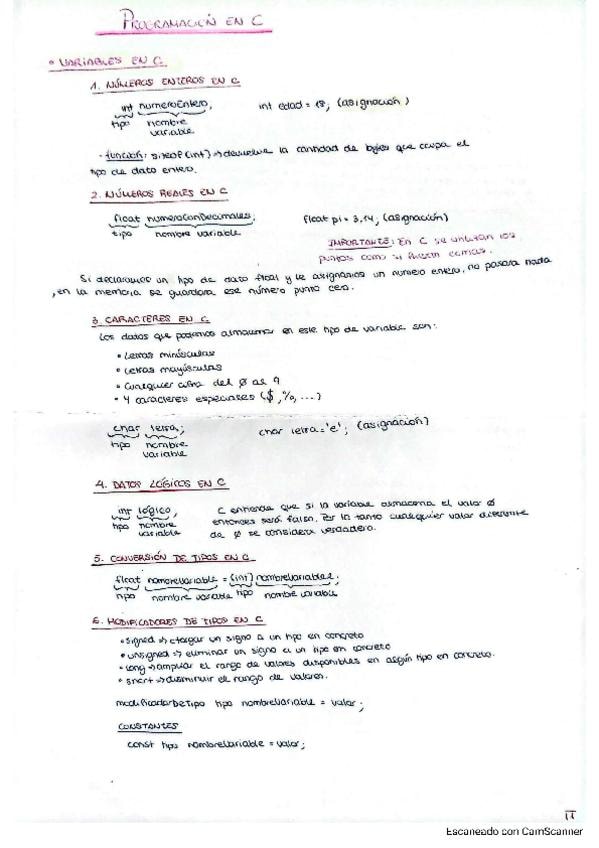 PROGRAMACIÓN EN C
• VARIABLES EN C
1. NÚMEROS ENTEROS EN C
int numeroEntero; int edad = 18; (asignación)
tipo nombre
variable
• función: sizeof (int) => devuelve la cantidad de bytes que ocupa el
tipo de dato entero.
2. NÚMEROS REALES EN C
float numeroConDecimales; float pi = 3.14; (asignación)
tipo nombre variable
IMPORTANTE: EN C se utilizan los
puntos como si fuesen comas.
Si declaramos un tipo de dato float y le asignamos un numero entero, no pasará nada
, en la memoria se guardara ese número punto cero.
3. CARACTERES EN C
Los datos que podemos almacenar en este tipo de variable son:
• Letras minúsculas
• Letras mayúsculas
• Cualquier cifra del 0 al 9
• Y caracteres especiales ($,%,...)
char letra; char letra = 'e'; (asignación)
tipo nombre
variable
4. DATOS LÓGICOS EN C
int lógico; C entiende que si la variable almacena el valor 0
tipo nombre entonces será falso. Por lo tanto cualquier valor diferente
variable de 0 se considera verdadero.
5. CONVERSIÓN DE TIPOS EN C
float nombreVariable = (int) nombreVariable2;
tipo nombre variable tipo nombre variable
6. MODIFICADORES DE TIPOS EN C
• signed => otorgar un signo a un tipo en concreto
• unsigned => eliminar un signo a un tipo en concreto
• long => ampliar el rango de valores disponibles en algún tipo en concreto.
• short => disminuir el rango de valores.
modificadorDeTipo tipo nombreVariable = valor;
CONSTANTES
const tipo nombreVariable = valor;
Escaneado con CamScanner